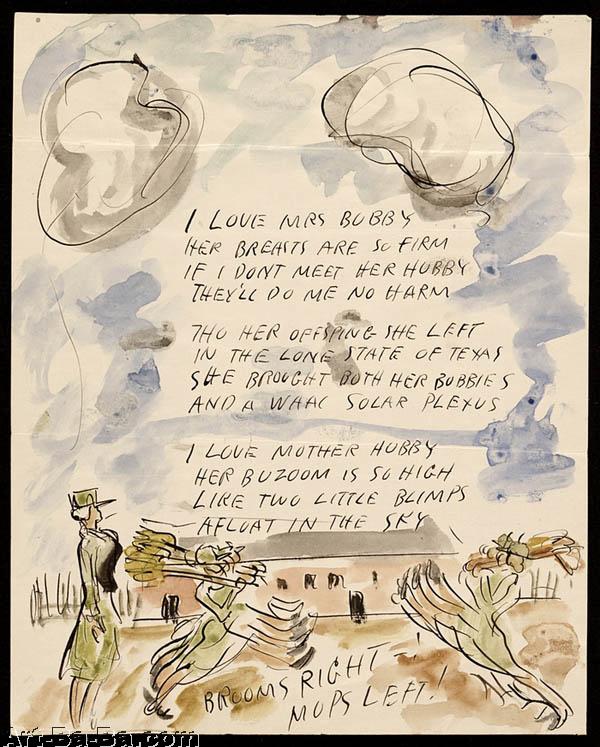 I LOVE MRS BUBBY
HER BREASTS ARE SO FIRM
IF I DONT MEET HER HUBBY
THEY'LL DO ME NO HARM
THO HER OFFSPING SHE LEFT
IN THE LONE STATE OF TEXAS
SHE BROUGHT BOTH HER BUBBIES
AND A WAAC SOLAR PLEXUS
I LOVE MOTHER HUBBY
HER BUZOOM IS SO HIGH
LIKE TWO LITTLE BLIMPS
AFLOAT IN THE SKY
BROOMS RIGHT —!
MOPS LEFT!
Art-Ba-Ba.com